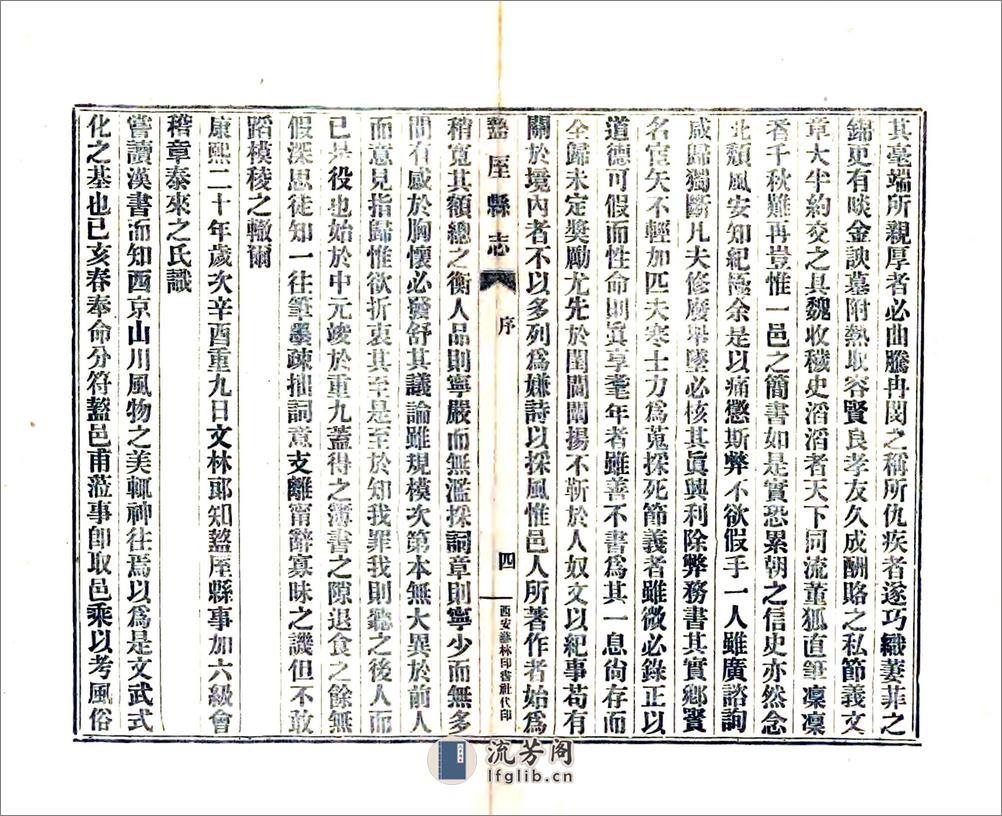 其毫端所親厚者必曲騰冉閔之稱所仇疾者遂巧織萋菲之
錦更有啖金諛墓附熱取容賢良孝友久成酬賂之私節義文
章大半約交之具魏收穢史滔滔者天下同流董狐直筆凜凜
者千秋難再豈惟一邑之簡書如是實恐累朝之信史亦然念
此頹風安知紀極余是以痛懲斯弊不欲假手一人雖廣諮詢
咸歸獨斷凡夫修廢舉墜必核其眞興利除弊務書其實鄉賢
名宦矣不輕加匹夫寒士力爲蒐採死節義者雖微必錄正以
道德可假而性命則眞享耄年者雖善不書爲其一息尙存而
全歸未定獎勵尤先於閨閫闡揚不靳於人奴文以紀事苟有
關於境內者不以多列爲嫌詩以採風惟邑人所著作者始爲
盩厔縣志
序
四
西安藝林印書社代印
稍寬其額總之衡人品則寧嚴而無濫採詞章則寧少而無多
間有感於胸懷必發舒其議論雖規模次第本無大異於前人
而意見指歸惟欲折衷其至是至於知我罪我則聽之後人而
已是役也始於中元竣於重九蓋得之簿書之隙退食之餘無
假深思徒知一往筆墨疎拙詞意支離甯辭寡昧之譏但不敢
蹈模稜之轍爾
康熙二十年歲次辛酉重九日文林郞知盩厔縣事加六級會
稽章泰來之氏識
嘗讀漢書而知西京山川風物之美輒神往焉以爲是文武式
化之基也已亥春奉命分符盩邑甫蒞事卽取邑乘以考風俗
流芳阁
lfglib.cn